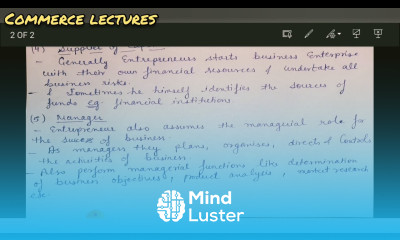 COMMERCE LECTURES
2 OF 2
(4) Supplier of
- Generally Entrepreneurs starts business Enterprise
with their own financial resources & undertake all
business risks.
- & Sometimes he himself identifies the sources of
funds eg financial institutions.
(5) Manager
- Entrepreneur also assumes the managerial role for
the success of business
- As managers they plans, organises, directs & Controls
the activities of business
- Also perform managerial functions like determination
of business objectives, product analysis, market research
etc.
Mind
Luster